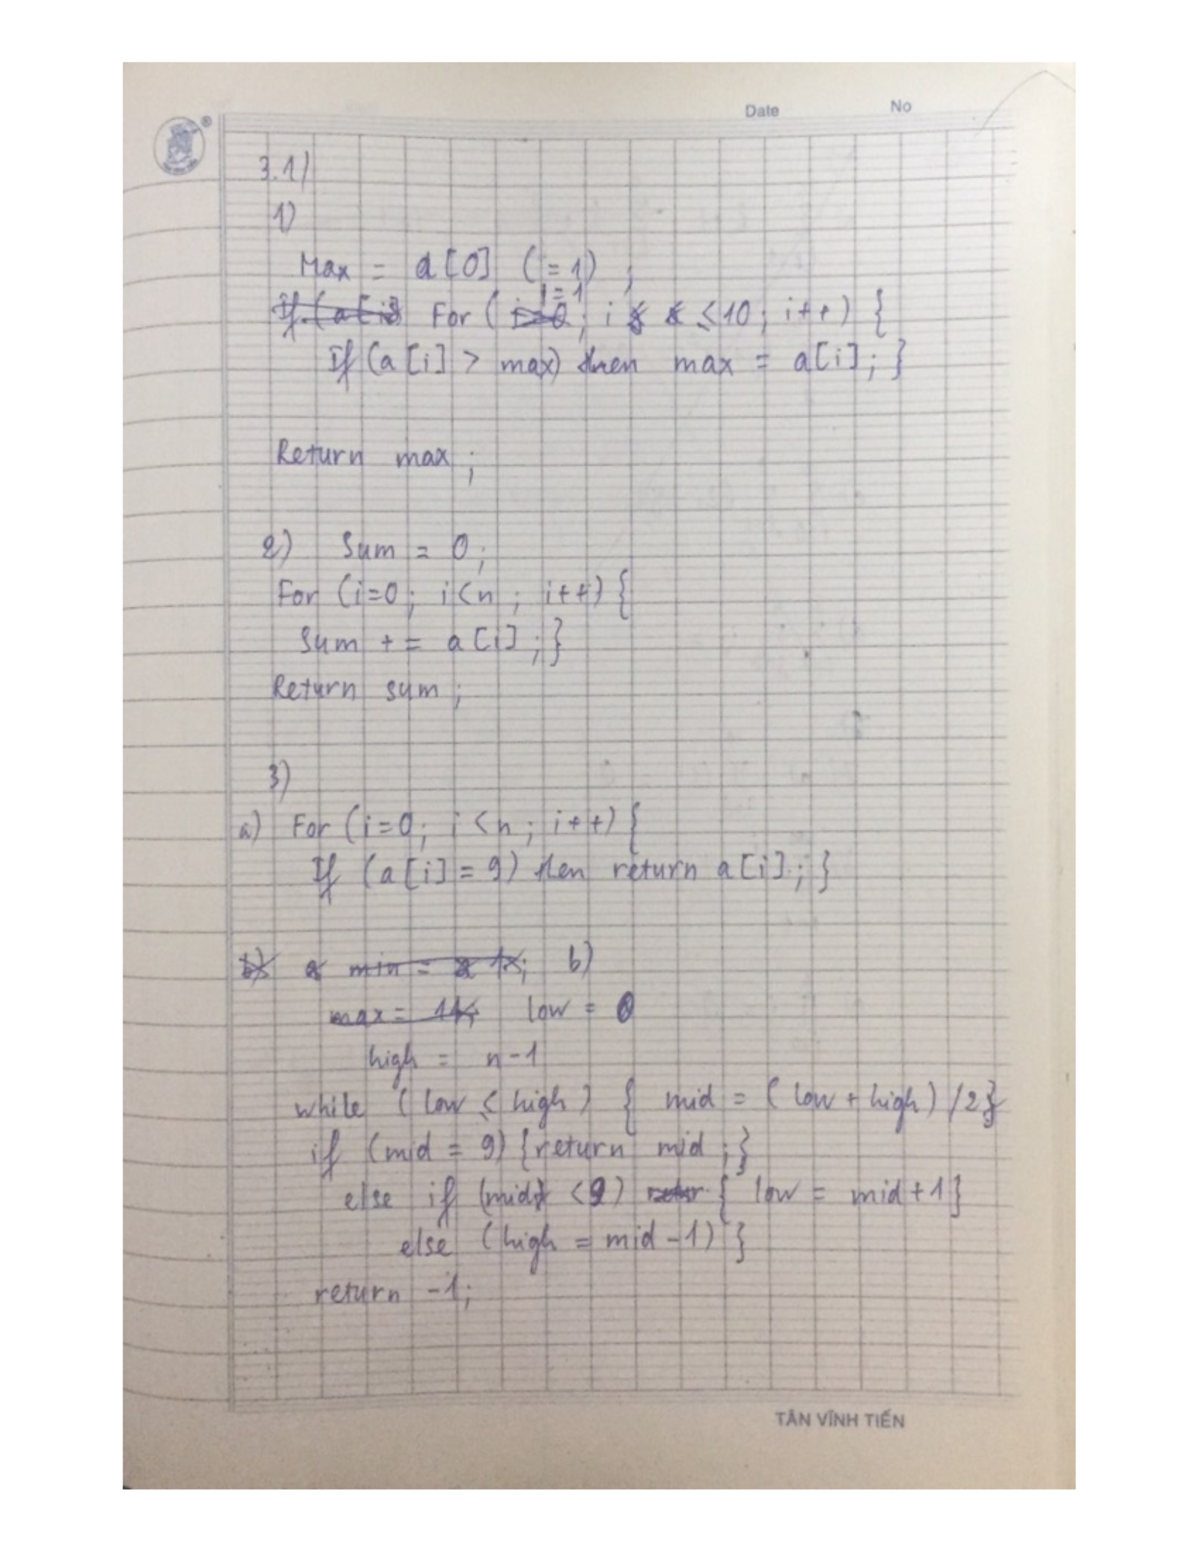 Date No
®
3.1)
1)
Max = a[0] (=1) ;
i=1
If (a[i] For ( i=0 ; i ≤10 ; i++) {
If (a[i] > max) then max = a[i]; }
Return max ;
2) Sum = 0;
For (i=0; i<n ; i++) {
Sum += a[i] ; }
Return sum ;
3)
a) For (i=0; i<n; i++) {
If (a[i] = 9) then return a[i]; }
b) min = ; b)
max = 11; low = 0
high = n-1
while (low ≤ high) { mid = (low + high) /2}
if (mid = 9) {return mid ;}
else if (mid) <9) retur { low = mid+1}
else (high = mid -1) }
return -1;
TÂN VĨNH TIẾN